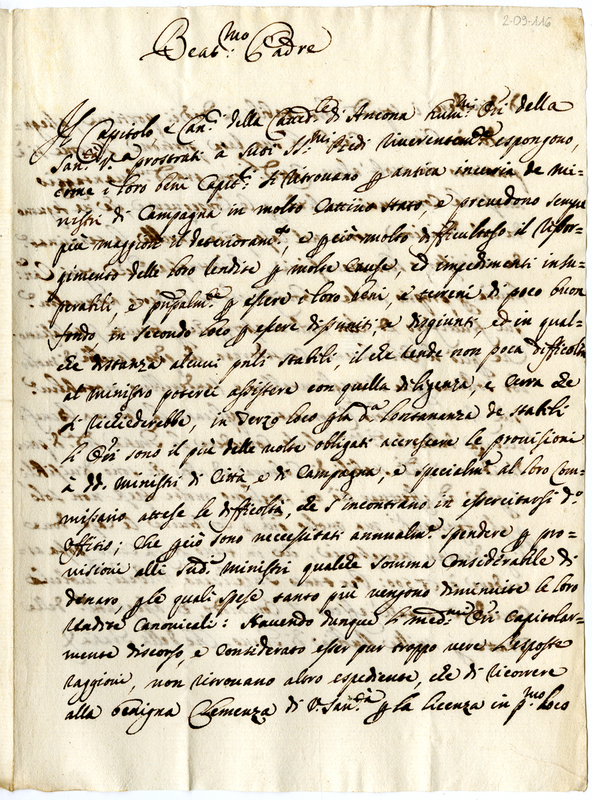 2-03-116
Beat.mo Padre
Il Capitolo e Can.ci della Catted.le di Ancona humi.mi Ori della
San.tà V.ra prostrati a suoi SS.mi Piedi riverentem.te espongono,
come i loro beni Capit.i si ritrovano p antica incuria de mi=
nistri di Campagna in molto cattivo stato, e prevedono sempre
più maggiore il deterioram.to, e p ciò molto difficultoso il risor=
gimento delle loro rendite p molte cause, ed impedimenti insu=
perabili, e pnpalm.te p essere i loro beni, e terreni di poco buon
fondo, in secondo loco p essere disuniti, e disgiunti, ed in qual=
che distanza alcuni pnti stabili, il che rende non poca difficoltà
al ministro poterci assistere con quella diligenza, e cura che
si richiederebbe, in terzo loco p la d.a lontananza de stabili
li Ori sono il più delle volte obligati accrescere le provisioni
à dd. ministri di Città, e di Campagna, e specialm.te al loro Com=
missario attese le difficoltà, che s'incontrano in essercitarsi d.o
offitio; che p ciò sono necessitati annualm.te spendere p pro=
visioni alli sud.i ministri qualche somma considerabile di
denaro, p le quali spese tanto più vengono diminuite le loro
rendite Canonicali: Havendo dunque li med.mi Ori Capitolar=
mente discorso, e considerato esser pur troppo vere l'esposte
raggioni, non ritrovano altro espediente, che di ricorrere
alla benigna Clemenza di V. San.tà p la licenza in p.mo loco